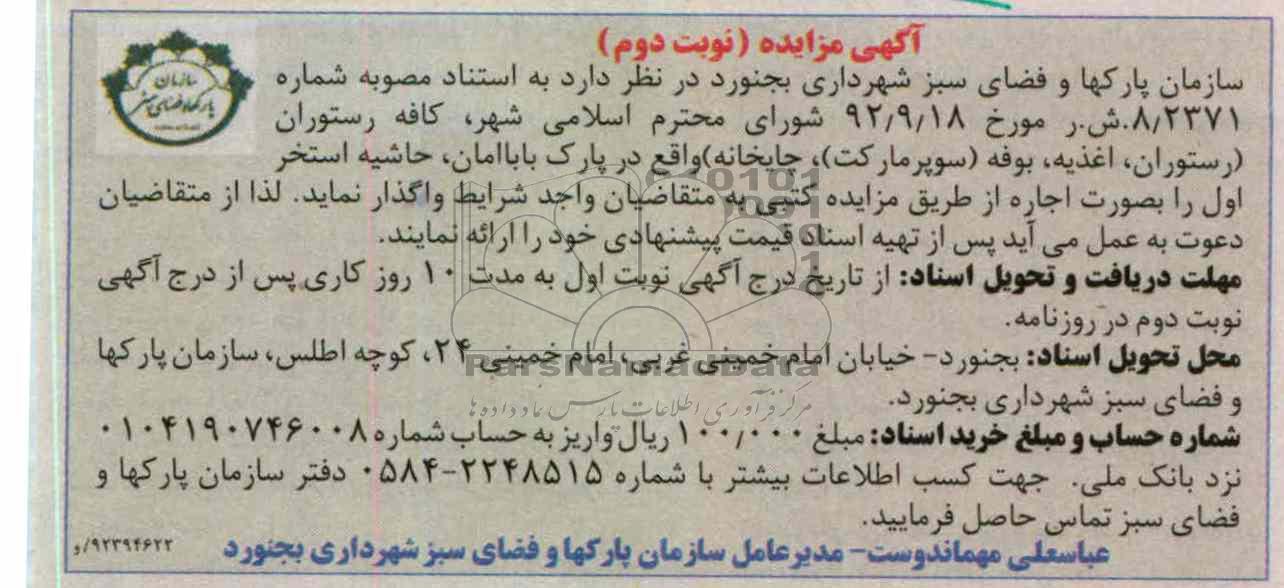 آگهی مزایده (نوبت دوم)
سازمان پارکها و فضای سبز شهرداری بجنورد در نظر دارد به استناد مصوبه شماره
۸٫۲۳۷۱.ش.ر مورخ ۹۲٫۹٫۱۸ شورای محترم اسلامی شهر، کافه رستوران
(رستوران، اغذیه، بوفه (سوپرمارکت)، چایخانه)واقع در پارک باباامان، حاشیه استخر
اول را بصورت اجاره از طریق مزایده کتبی به متقاضیان واجد شرایط واگذار نماید. لذا از متقاضیان
دعوت به عمل می آید پس از تهیه اسناد قیمت پیشنهادی خود را ارائه نمایند.
مهلت دریافت و تحویل اسناد: از تاریخ درج آگهی نوبت اول به مدت ۱۰ روز کاری پس از درج آگهی
نوبت دوم در روزنامه.
محل تحویل اسناد: بجنورد- خیابان امام خمینی غربی، امام خمینی ۲۴، کوچه اطلس، سازمان پارکها
و فضای سبز شهرداری بجنورد.
شماره حساب و مبلغ خرید اسناد: مبلغ ۱۰۰٫۰۰۰ ریال واریز به حساب شماره ۰۱۰۴۱۹۰۷۴۶۰۰۸
نزد بانک ملی. جهت کسب اطلاعات بیشتر با شماره ۲۲۴۸۵۱۵-۰۵۸۴ دفتر سازمان پارکها و
فضای سبز تماس حاصل فرمایید.
عباسعلی مهماندوست- مدیرعامل سازمان پارکها و فضای سبز شهرداری بجنورد
۹۲۳۹۴۶۲۲/و
سازمان
پارکها و فضای سبز
ParsNamadData
مرکز فرآوری اطلاعات پارس نماد داده ها